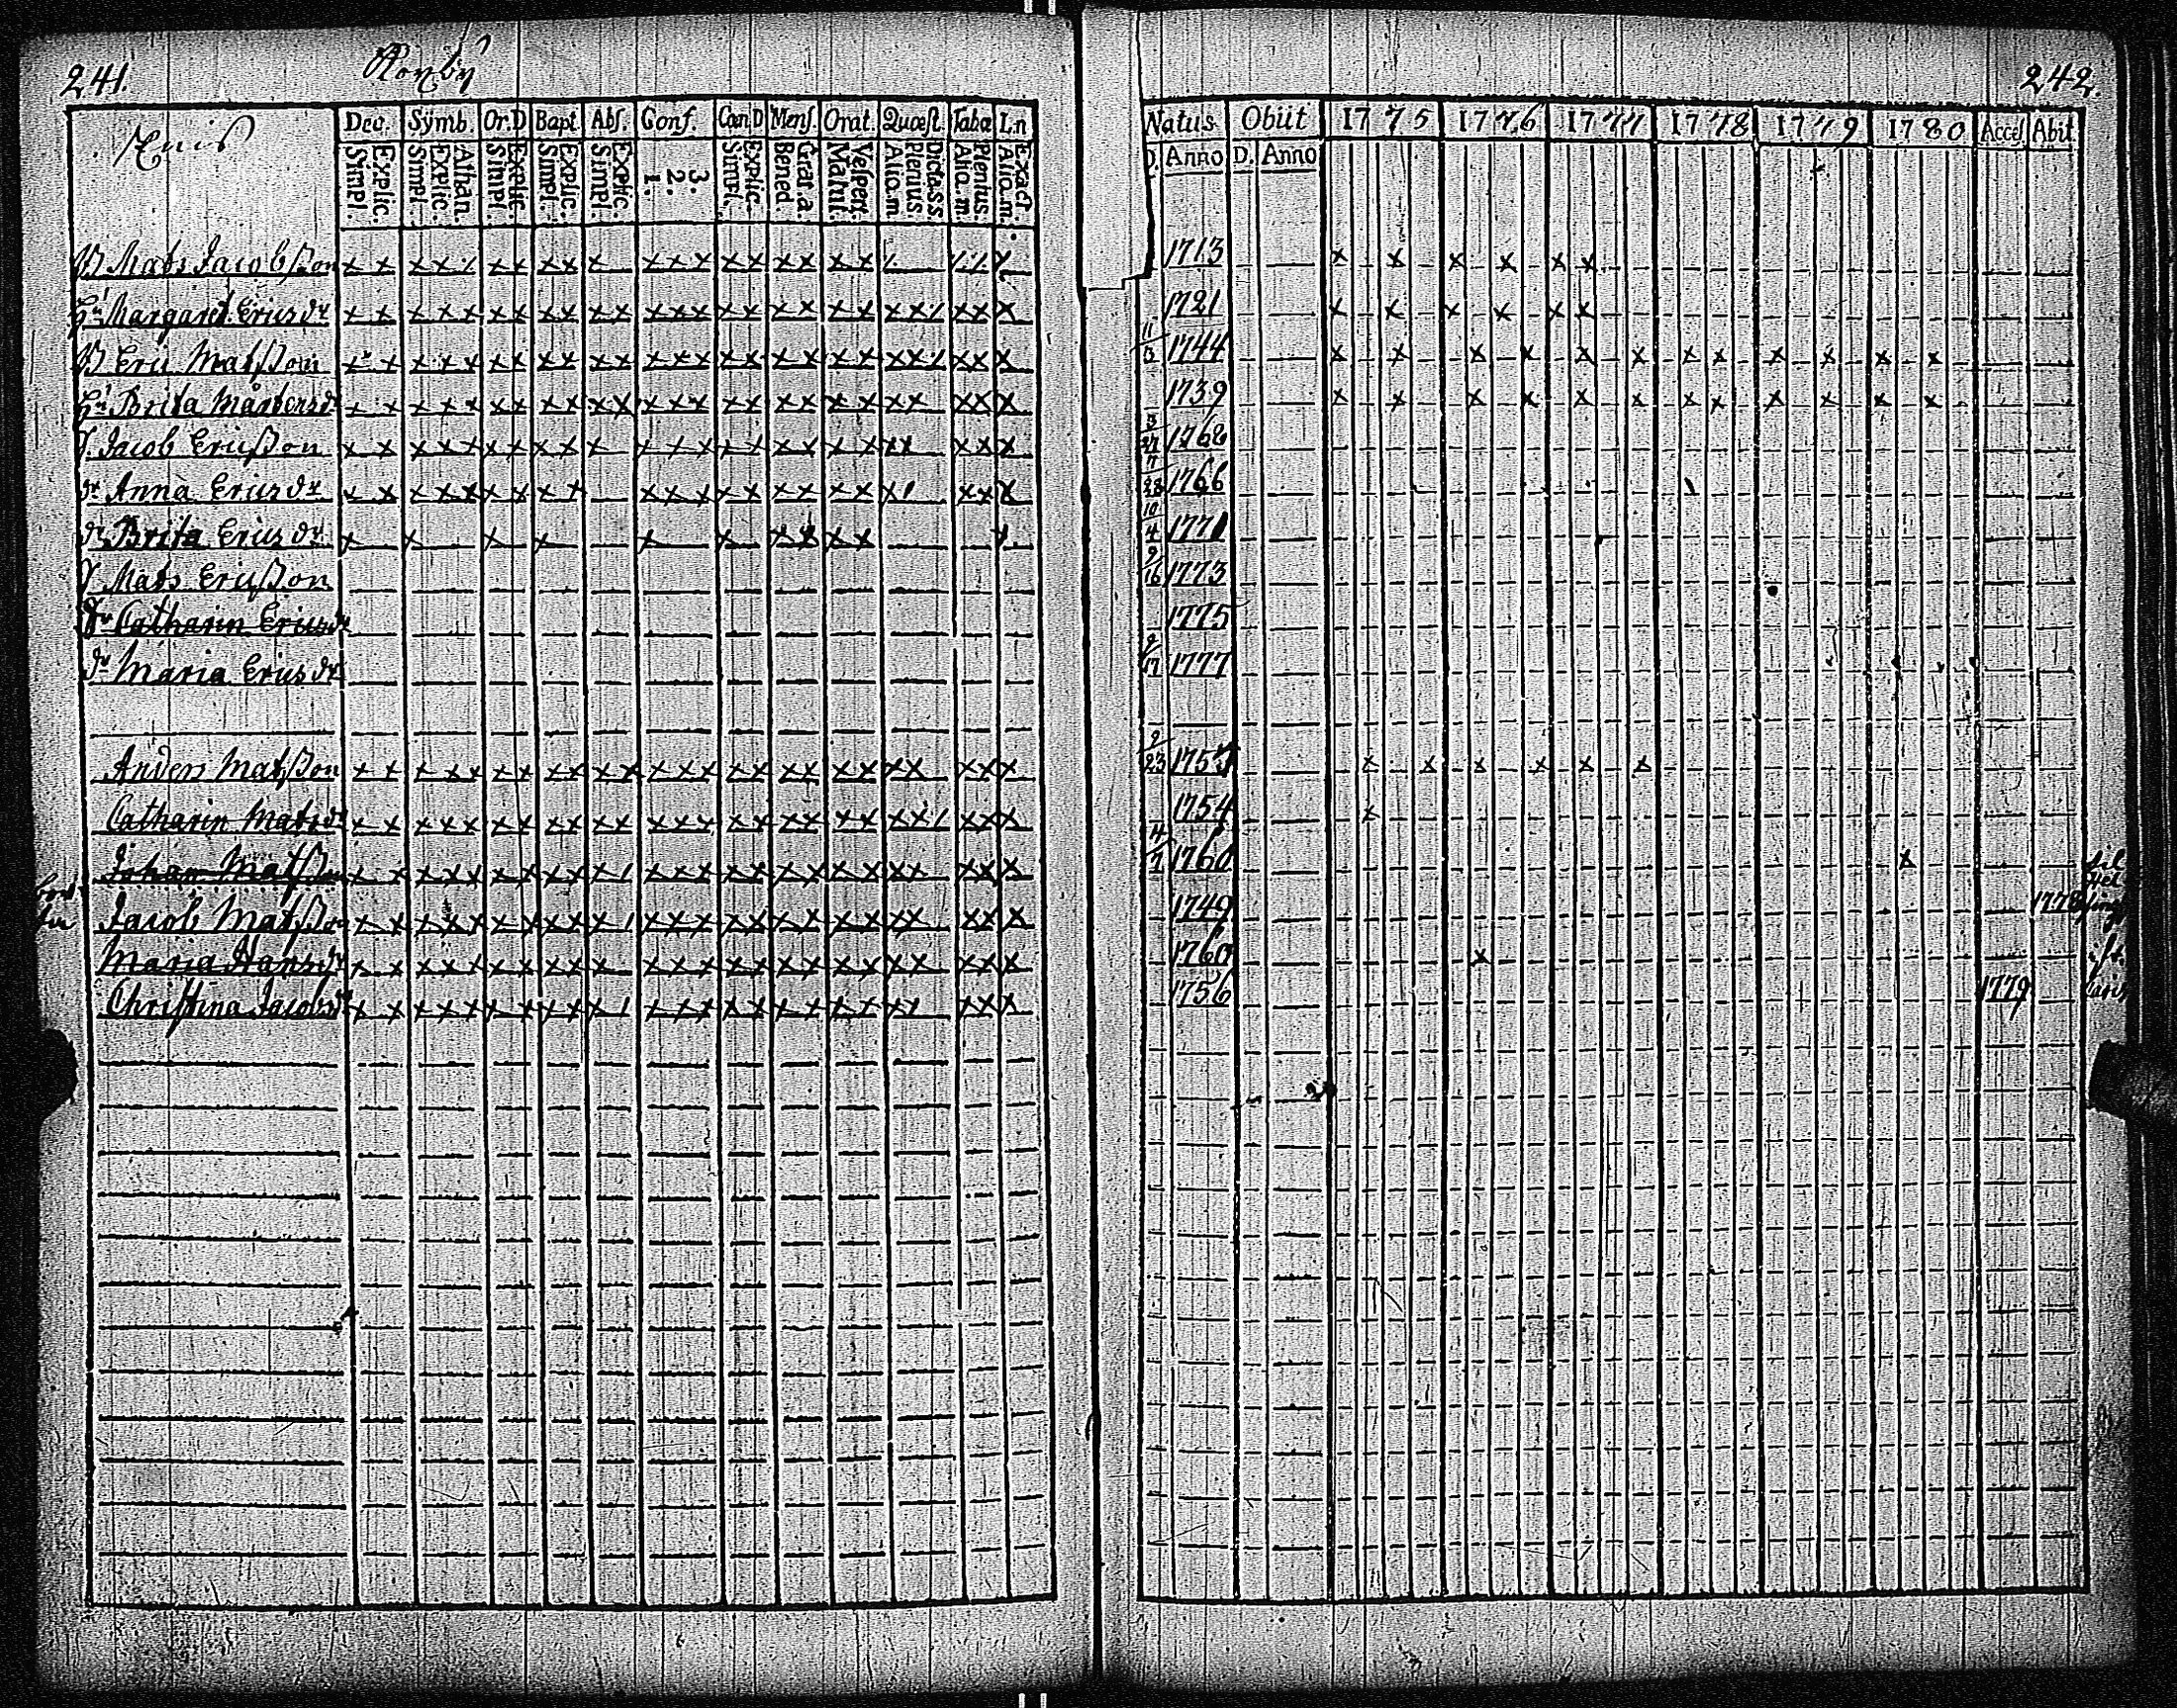 241.
Dec. Symb. Or.D Bapt. Abs. Conf. Cœn D Mens. Orat. Quæst. Tabæ L.n
Simpl. Explic. Simpl. Explic. Athan. Simpl. Explic. Simpl. Explic. Simpl. Explic. 1. 2. 3. Simpl. Explic. Bened. Grat. a. Matut. Vespert. Alio. m. Plenius Dict. a SS. Alio. m. Plenius. Alio. m. Exact.
B Mats Jacobsson x x x x x x x x x x x x x x x x x x
Margaret Ericsdr x x x x x x x x x x x x x x x x x x x x x x x x x
B Eric Matsson x x x x x x x x x x x x x x x x x x x x x x x x x
Brita Mårtensdr x x x x x x x x x x x x x x x x x x x x x x x x
Jacob Ericsson x x x x x x x x x x x x x x x x x x x x x x x
dr Anna Ericsdr x x x x x x x x x x x x x x x x x x x x x x
dr Brita Ericsdr x x x x x x x x x x
Mats Ericsson
dr Catharin Ericsdr
dr Maria Ericsdr
Anders Matsson x x x x x x x x x x x x x x x x x x x x x x x x
Catharin Matsdr x x x x x x x x x x x x x x x x x x x x x x x x
Johan Matsson x x x x x x x x x x x x x x x x x x x x x x x
Jacob Matsson x x x x x x x x x x x x x x x x x x x x x x x
Maria Hansdr x x x x x x x x x x x x x x x x x x x x x x x
Christina Jacobsdr x x x x x x x x x x x x x x x x x x x x x x x
242.
Natus Obiit 1775 1776 1777 1778 1779 1780 Acces Abit
D. Anno D. Anno
1713 x x x x x x
1721 x x x x x x
1744 x x x x x x x x x x x x
1739 x x x x x x x x x x x x
1768
7/28 1766
10/4 1771
9/16 1773
1775
9/17 1777
9/23 1753 x x x x x x
1754 x
4/7 1760 x
1749 1778
1760 x
1756 1779